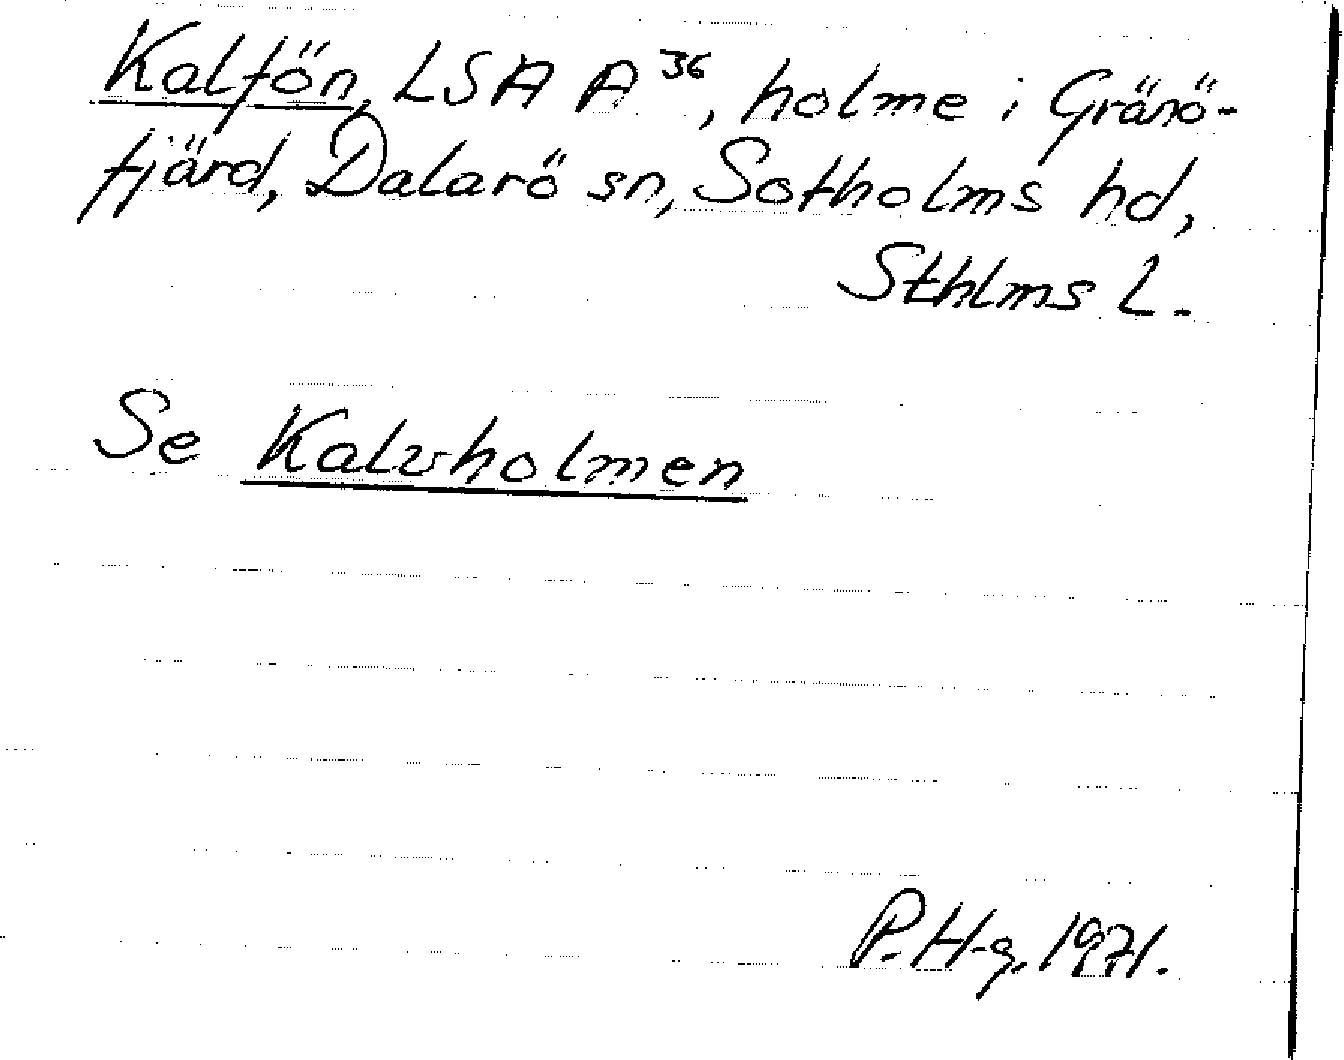 Kalfön, LSA A 36, holme i Gränö-
fjärd, Dalarö sn, Sotholms hd,
Sthlms L.
Se Kalvholmen
P. H-g. 1971.